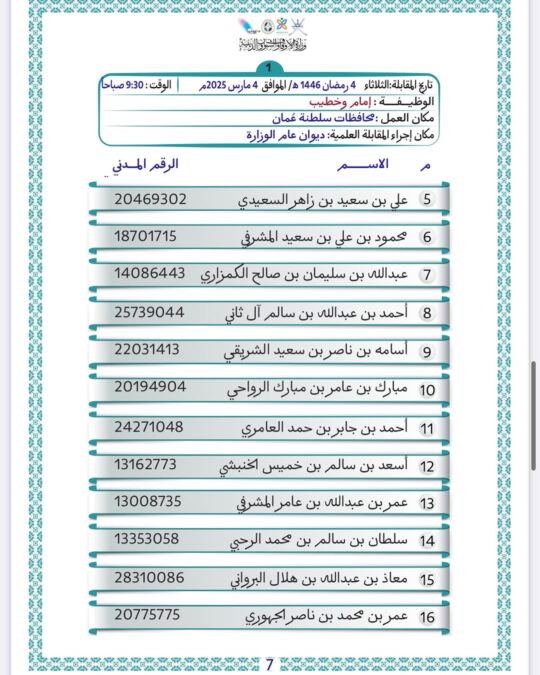 وزارة الأوقاف والشؤون الدينية
1
تاريخ المقابلة:الثلاثاء 4 رمضان 1446 ه/ الموافق 4 مارس 2025م الوقت : 9:30 صباحا
الوظيفـــة : إمام وخطيب
مكان العمل : محافظات سلطنة عُمان
مكان إجراء المقابلة العلمية: ديوان عام الوزارة
م الاســـــم الرقم المـدني
5 علي بن سعيد بن زاهر السعيدي 20469302
6 محمود بن علي بن سعيد المشرفي 18701715
7 عبدالله بن سليمان بن صالح الكمزاري 14086443
8 أحمد بن عبدالله بن سالم آل ثاني 25739044
9 أسامه بن ناصر بن سعيد الشريقي 22031413
10 مبارك بن عامر بن مبارك الرواحي 20194904
11 أحمد بن جابر بن حمد العامري 24271048
12 أسعد بن سالم بن خميس الخنبشي 13162773
13 عمر بن عبدالله بن عامر المشرفي 13008735
14 سلطان بن سالم بن محمد الرحبي 13353058
15 معاذ بن عبدالله بن هلال البرواني 28310086
16 عمر بن محمد بن ناصر الجهوري 20775775
7